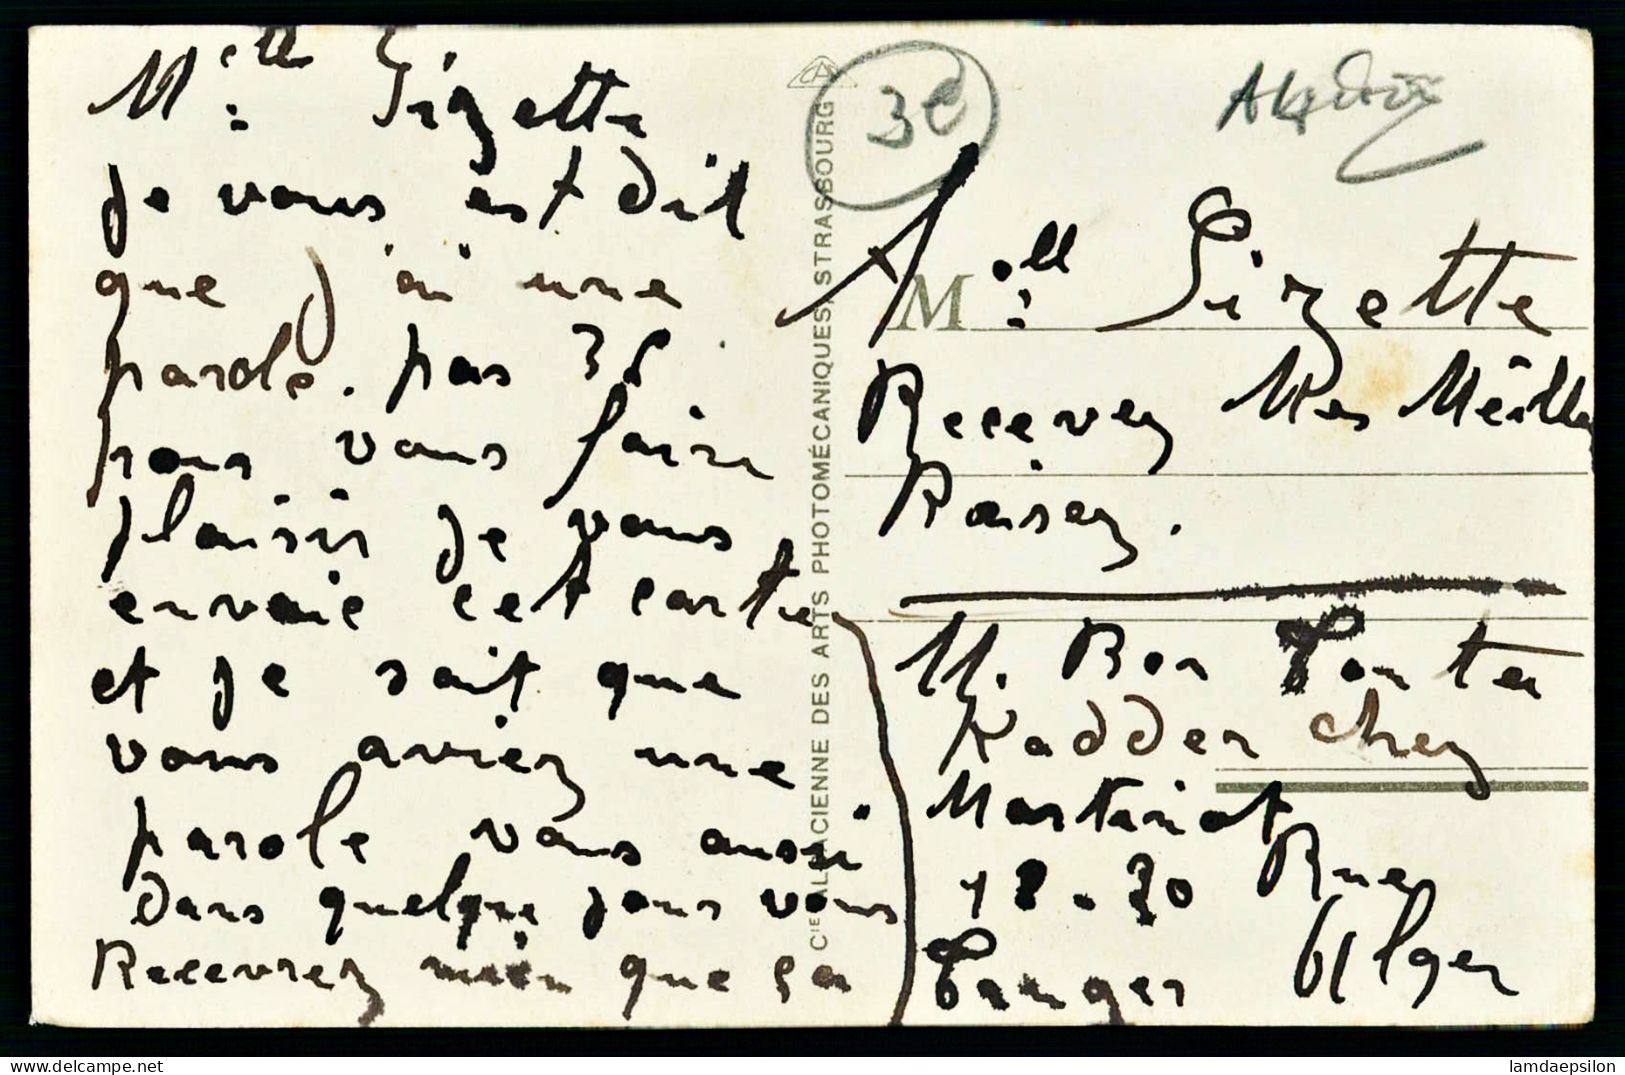 Melle Gizette
je vous est dit
que j'ai une
parole. pas 36
pour vous faire
plaisir je vous
envoie cet carte
et je sait que
vous aviez une
parole vous aussi
dans quelque jours vous
Recevrez mien que ça
Cie ALSACIENNE DES ARTS PHOTOMÉCANIQUES, STRASBOURG
CAP
3e
A
Melle Gizette
Recevez Mes Meille
Baisez.
M. Bon Tonter
Kadder chez
Martinot
18 - 20 Rue
Tanger Alger
lamdaepsilon